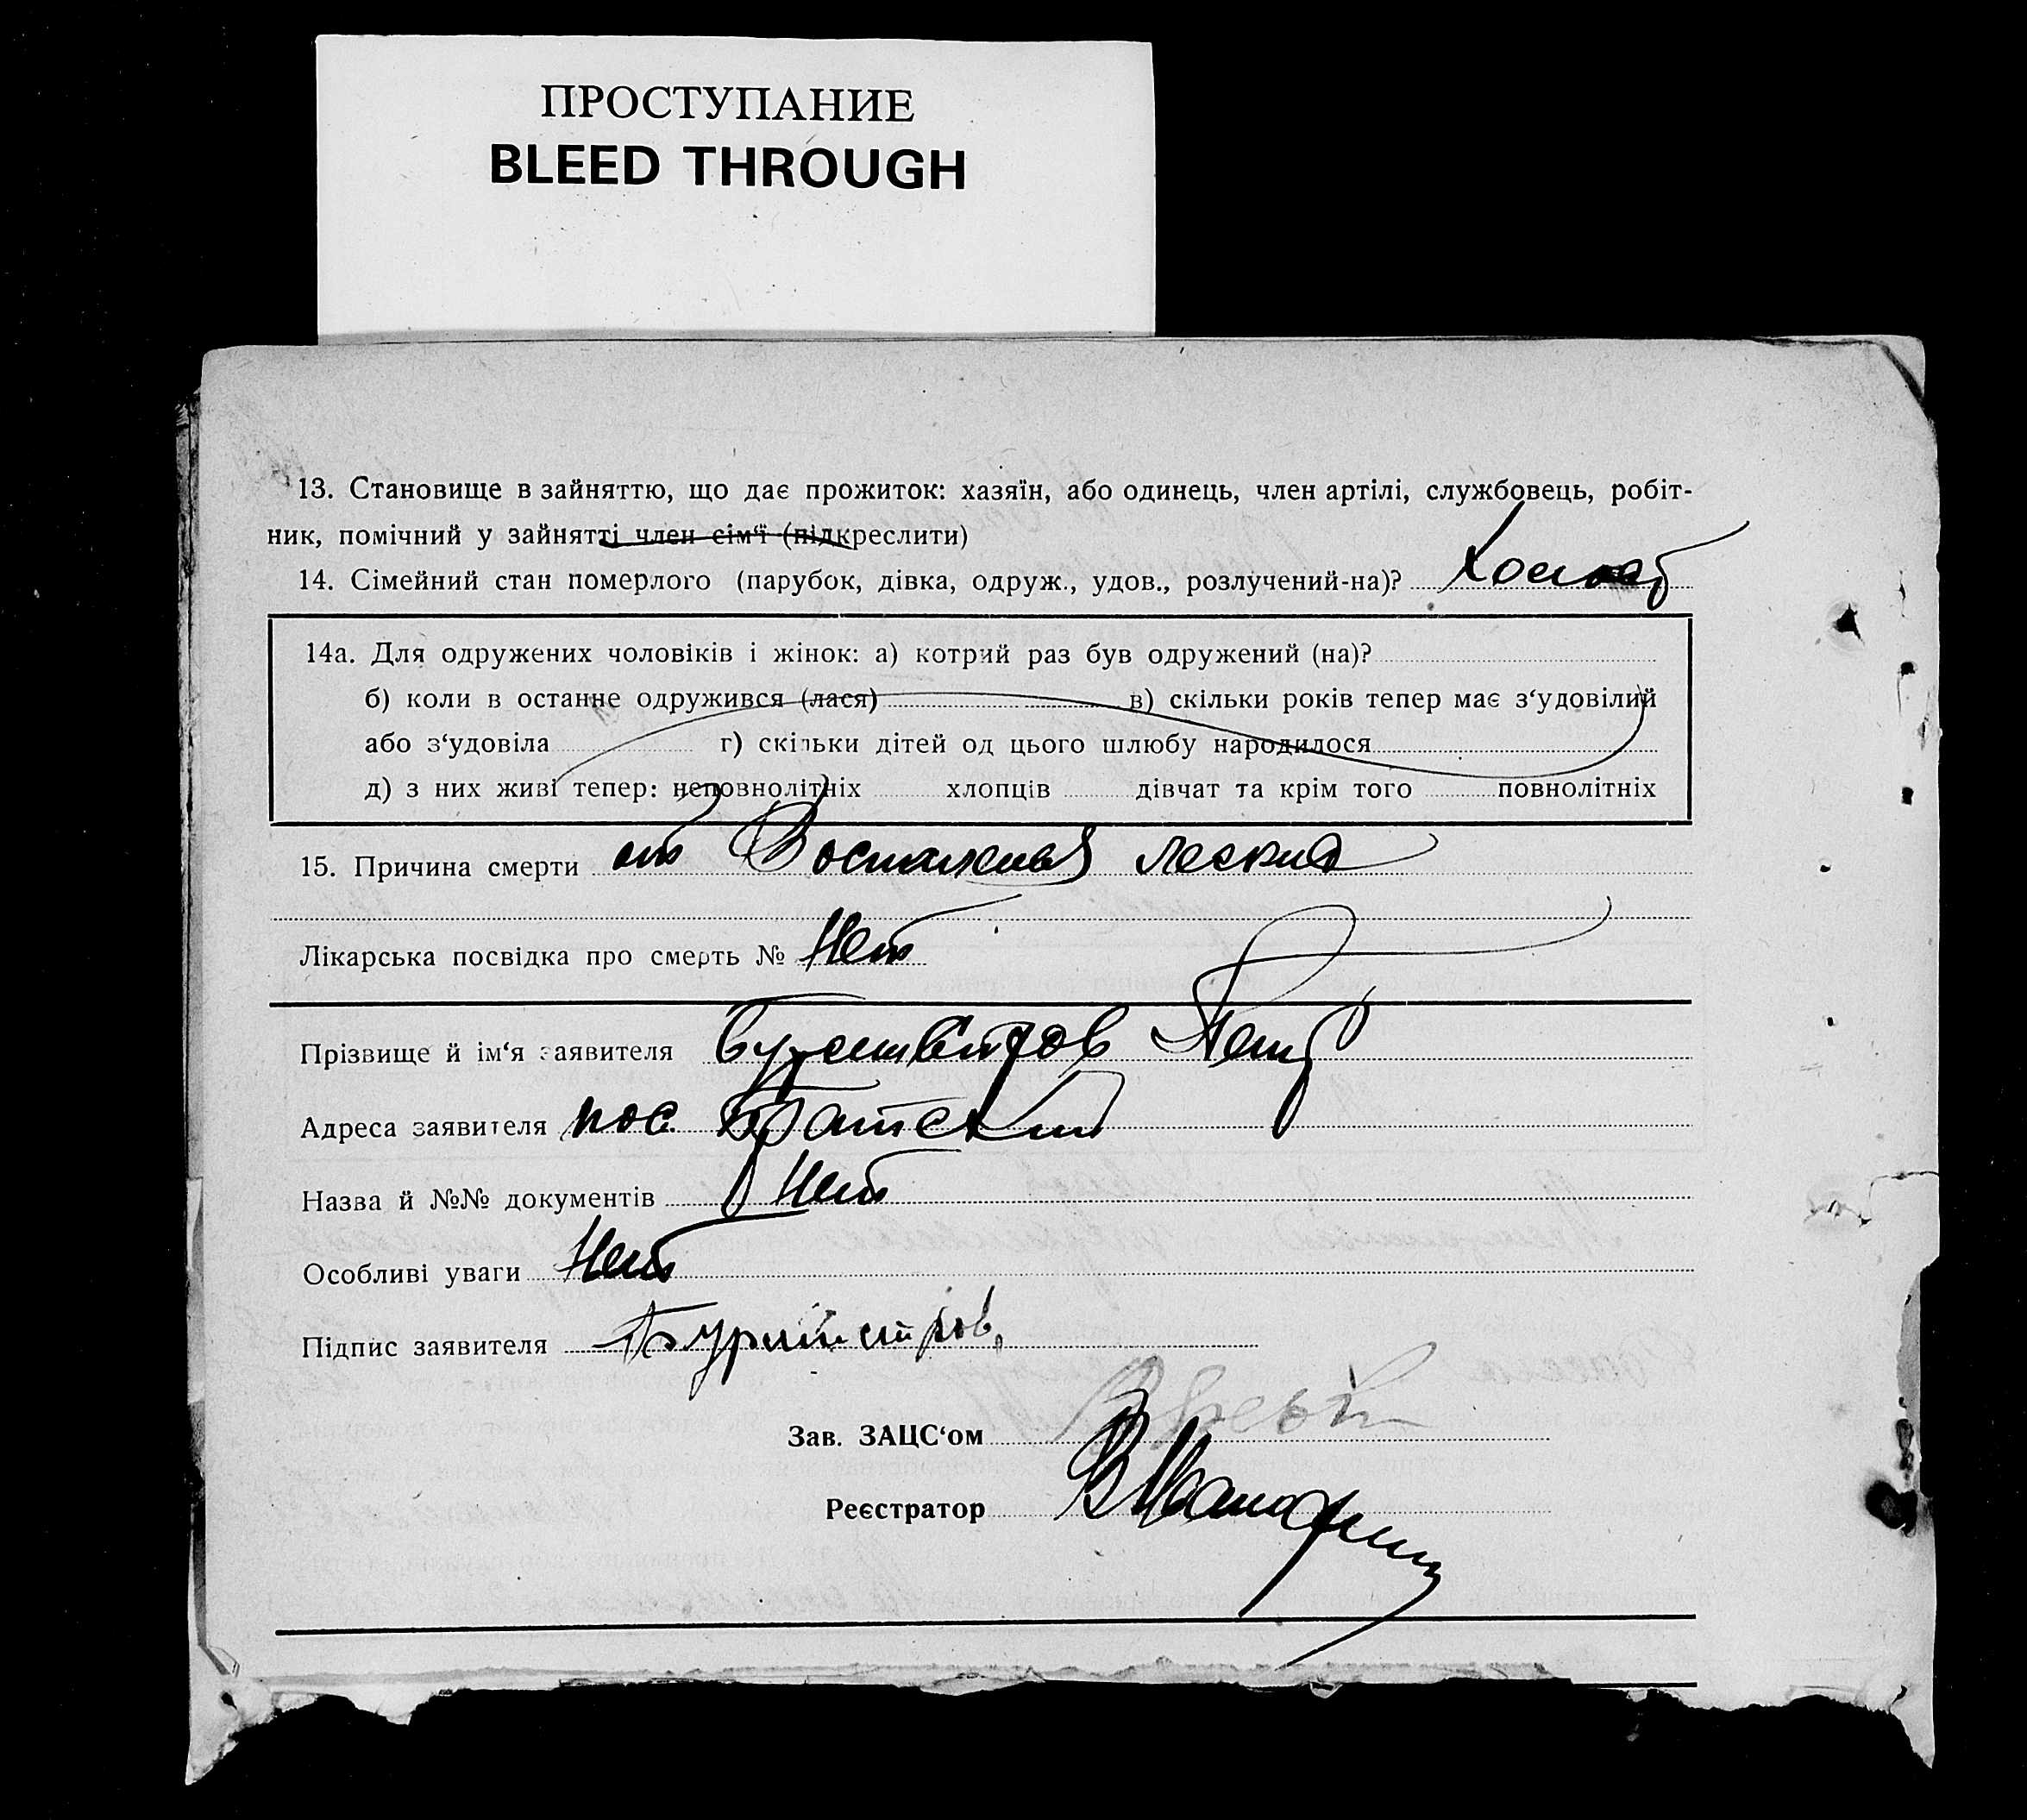 ПРОСТУПАНИЕ
BLEED THROUGH
13. Становище в зайняттю, що дає прожиток: хазяїн, або одинець, член артілі, службовець, робіт-
ник, помічний у зайнятті член сім‘ї (підкреслити)
14. Сімейний стан померлого (парубок, дівка, одруж., удов., розлучений-на)? Холост
14а. Для одружених чоловіків і жінок: а) котрий раз був одружений (на)?
б) коли в останнє одружився (лася) в) скільки років тепер має з‘удовілий
або з‘удовіла г) скільки дітей од цього шлюбу народилося
д) з них живі тепер: неповнолітніх хлопців дівчат та крім того повнолітніх
15. Причина смерти от Воспаления легких
Лікарська посвідка про смерть № Нет
Прізвище й ім‘я заявителя Бурмистров Петр
Адреса заявителя пос. Братский
Назва й №№ документів Нет
Особливі уваги Нет
Підпис заявителя Бурмистров
Зав. ЗАЦС‘ом
Реєстратор